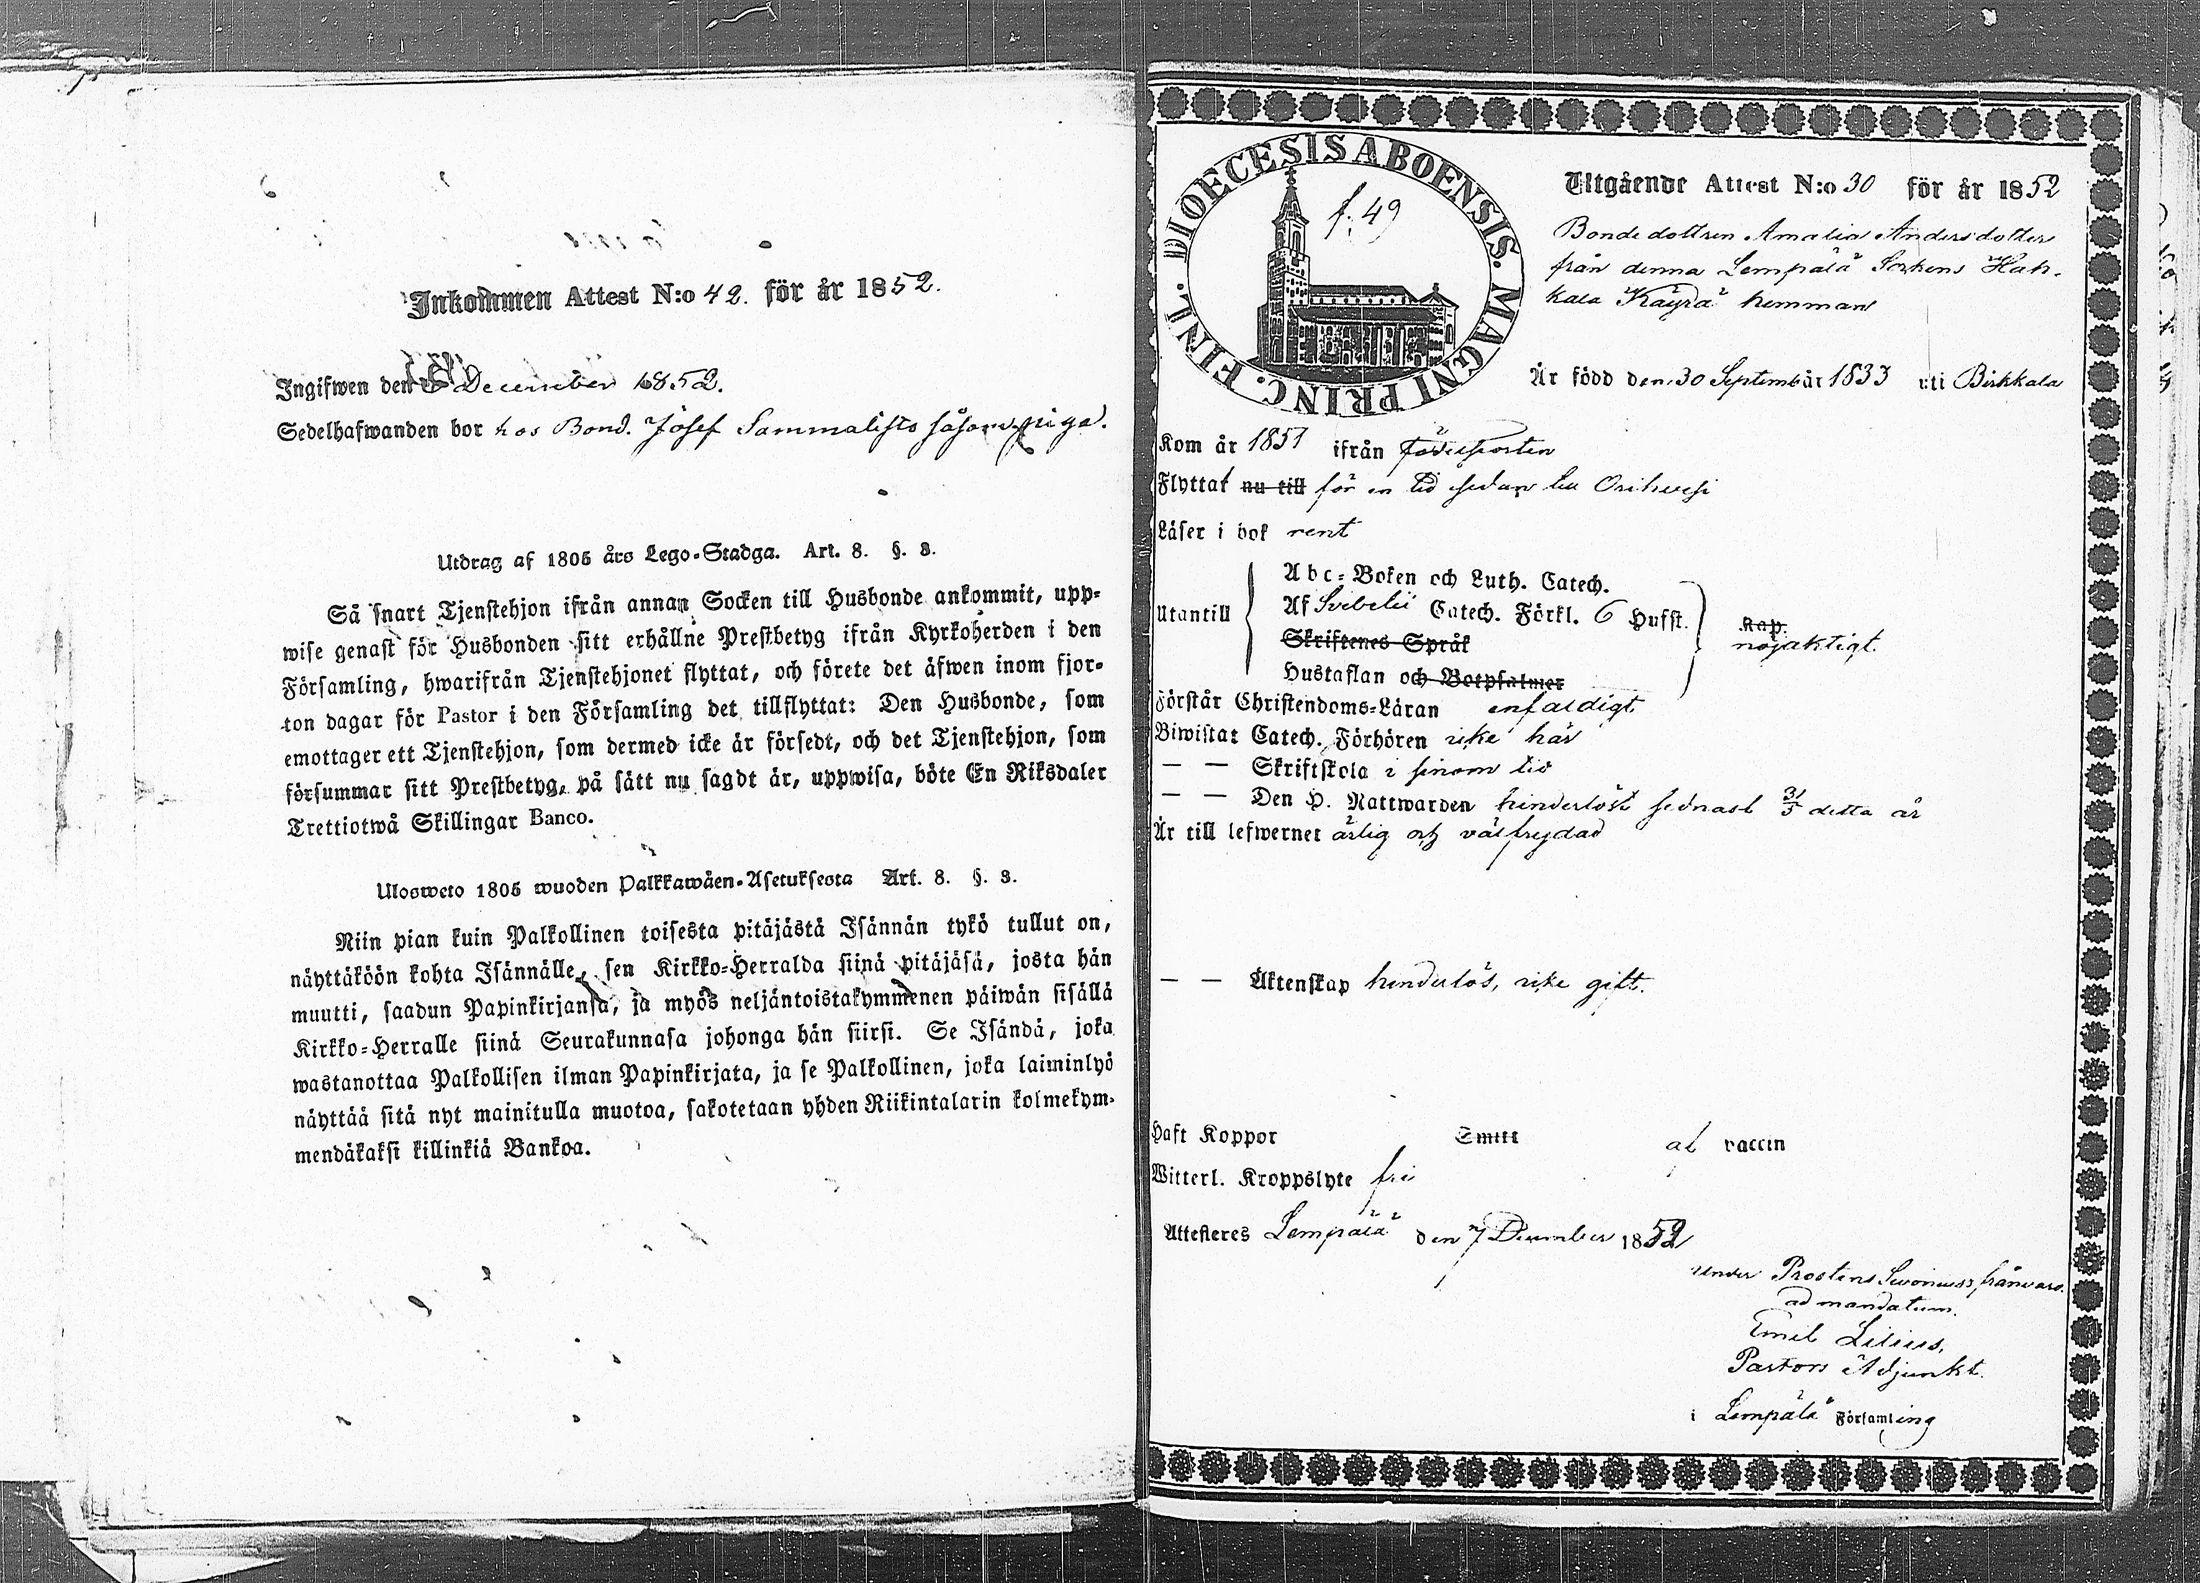 Inkommen Attest N:o 42. för år 1852.
Ingifwen den December 1852.
Sedelhafwanden bor hos Bond. Josef Sammalisto såsom piga.
Utdrag af 1805 års Lego-Stadga. Art. 8. §. 3.
Så snart Tjenstehjon ifrån annan Socken till Husbonde ankommit, upp-
wise genast för Husbonden sitt erhållne Prestbetyg ifrån Kyrkoherden i den
Församling, hwarifrån Tjenstehjonet flyttat, och förete det äfwen inom fjor-
ton dagar för Pastor i den Församling det tillflyttat: Den Husbonde, som
emottager ett Tjenstehjon, som dermed icke är försedt, och det Tjenstehjon, som
försummar sitt Prestbetyg, på sätt nu sagdt är, uppwisa, böte En Riksdaler
Trettiotwå Skillingar Banco.
Ulosweto 1805 wuoden Palkkawäen-Asetuksesta Art. 8. §. 3.
Niin pian kuin Palkollinen toisesta pitäjästä Isännän tykö tullut on,
näyttäköön kohta Isännälle, sen Kirkko-Herralda siinä pitäjäsä, josta hän
muutti, saadun Papinkirjansa, ja myös neljäntoistakymmenen päiwän sisällä
Kirkko-Herralle siinä Seurakunnasa johonga hän siirsi. Se Isändä, joka
wastanottaa Palkollisen ilman Papinkirjata, ja se Palkollinen, joka laiminlyö
näyttää sitä nyt mainitulla muotoa, sakotetaan yhden Riikintalarin kolmekym-
mendäkaksi killinkiä Bankoa.
DIOECESIS ABOENSIS. MAGNI PRINC. FINL.
f. 49
Utgående Attest N:o 30 för år 1852
Bondedottren Amalia Andersdotter
från denna Lempälä Sockens Hak-
kala Käyrä hemman
Är född den 30 September 1833 uti Birkkala
Kom år 1851 ifrån födelseorten
Flyttat nu till för en tid sedan till Orihvesi
Läser i bok rent
Utantill
Abc-Boken och Luth. Catech.
Af Svebelii Catech. Förkl. 6 Hufst.
Skriftenes Språk
Hustaflan och Botpsalmer
Kap.
nöjaktigt.
Förstår Christendoms-Läran enfaldigt
Biwistat Catech. Förhören icke här
— — Skriftskola i sinom tid
— — Den H. Nattwarden hinderlöst sednast 31/5 detta år
Är till lefwernet ärlig och välfrejdad
— — Äktenskap hinderlös, icke gift.
Haft Koppor Smitt af vaccin
Witterl. Kroppslyte fri
Attesteres Lempälä den 7 December 1852
under Prostens frånvaro.
ad mandatum.
Emil Lilius,
Pastors Adjunkt.
i Lempälä Församling